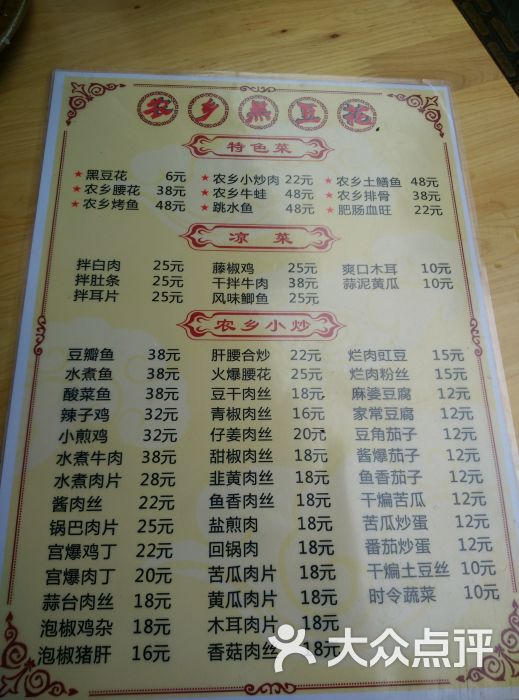 农乡黑豆花
特色菜
★黑豆花 6元 ★农乡小炒肉 22元 ★农乡土鳝鱼 48元
★农乡腰花 38元 ★农乡牛蛙 48元 ★农乡排骨 38元
★农乡烤鱼 48元 ★跳水鱼 48元 ★肥肠血旺 22元
凉菜
拌白肉 25元 藤椒鸡 25元 爽口木耳 10元
拌肚条 25元 干拌牛肉 38元 蒜泥黄瓜 10元
拌耳片 25元 风味鲫鱼 25元
农乡小炒
豆瓣鱼 38元 肝腰合炒 22元 烂肉豇豆 15元
水煮鱼 38元 火爆腰花 25元 烂肉粉丝 15元
酸菜鱼 38元 豆干肉丝 18元 麻婆豆腐 12元
辣子鸡 32元 青椒肉丝 16元 家常豆腐 12元
小煎鸡 32元 仔姜肉丝 20元 豆角茄子 12元
水煮牛肉 38元 甜椒肉丝 18元 酱爆茄子 12元
水煮肉片 28元 韭黄肉丝 18元 鱼香茄子 12元
酱肉丝 22元 鱼香肉丝 18元 干煸苦瓜 12元
锅巴肉片 25元 盐煎肉 18元 苦瓜炒蛋 12元
宫爆鸡丁 22元 回锅肉 18元 番茄炒蛋 12元
宫爆肉丁 20元 苦瓜肉片 18元 干煸土豆丝 10元
蒜台肉丝 18元 黄瓜肉片 18元 时令蔬菜 10元
泡椒鸡杂 18元 木耳肉片 18元
泡椒猪肝 16元 香菇肉丝 18元
大众点评